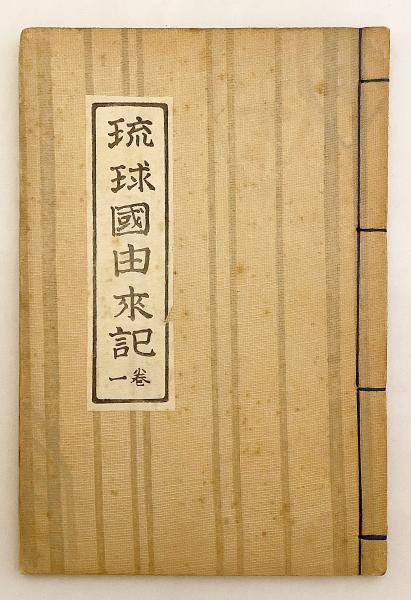 琉球國由來記
卷一